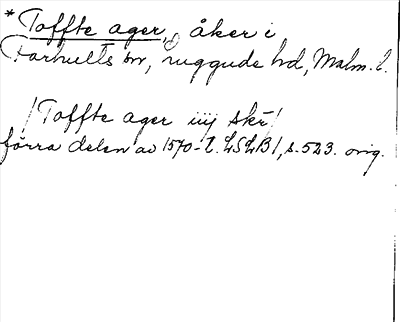 * Toffte ager, åker i
Farhults sn, Luggude hd, Malm. l.
/Toffte ager iiij skr/
förra delen av 1570-t. LSLB 1, s. 523. orig.